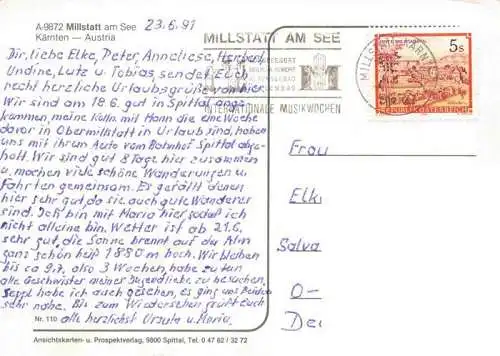 A-9872 Millstatt am See
Kärnten — Austria
23.6.91
Dir, liebe Elke, Peter, Anneliese, Herbert,
Undine, Lutz u. Tobias, sendet Euch
recht herzliche Urlaubsgrüße von hier.
Wir sind am 18.6. gut in Spittal ange-
kommen, meine Kolln. mit Mann die eine Woche
davor in Obermillstatt in Urlaub sind, haben
uns mit ihrem Auto vom Bahnhof Spittal abge-
holt. Wir sind gut 8 Tage hier zusammen
u. machen viele schöne Wanderungen u.
Fahrten gemeinsam. Es gefällt denen
hier sehr gut, da sie auch gute Wanderer
sind. Ich bin mit Maria hier, sodaß ich
nicht alleine bin. Wetter ist ab 21.6.
sehr gut, die Sonne brennt auf der Alm
ganz schön heiß 1880 m hoch. Wir bleiben
bis ca 9.7. also 3 Wochen, habe zu tun
alle Geschwister meiner Jugendliebe zu besuchen.
Seppl habe ich auch gesehen, es ging uns Beiden
sehr nahe. Bis zum Wiedersehen grüßt Euch
alle herzlichst Ursula u. Maria.
Nr. 110
Ansichtskarten- u. Prospektverlag, 9800 Spittal, Tel. 0 47 62 / 32 72
MILLSTATT AM SEE
INTERNATIONALE MUSIKWOCHEN
5 S
REPUBLIK ÖSTERREICH
Frau
Elk
Salva
0-
De